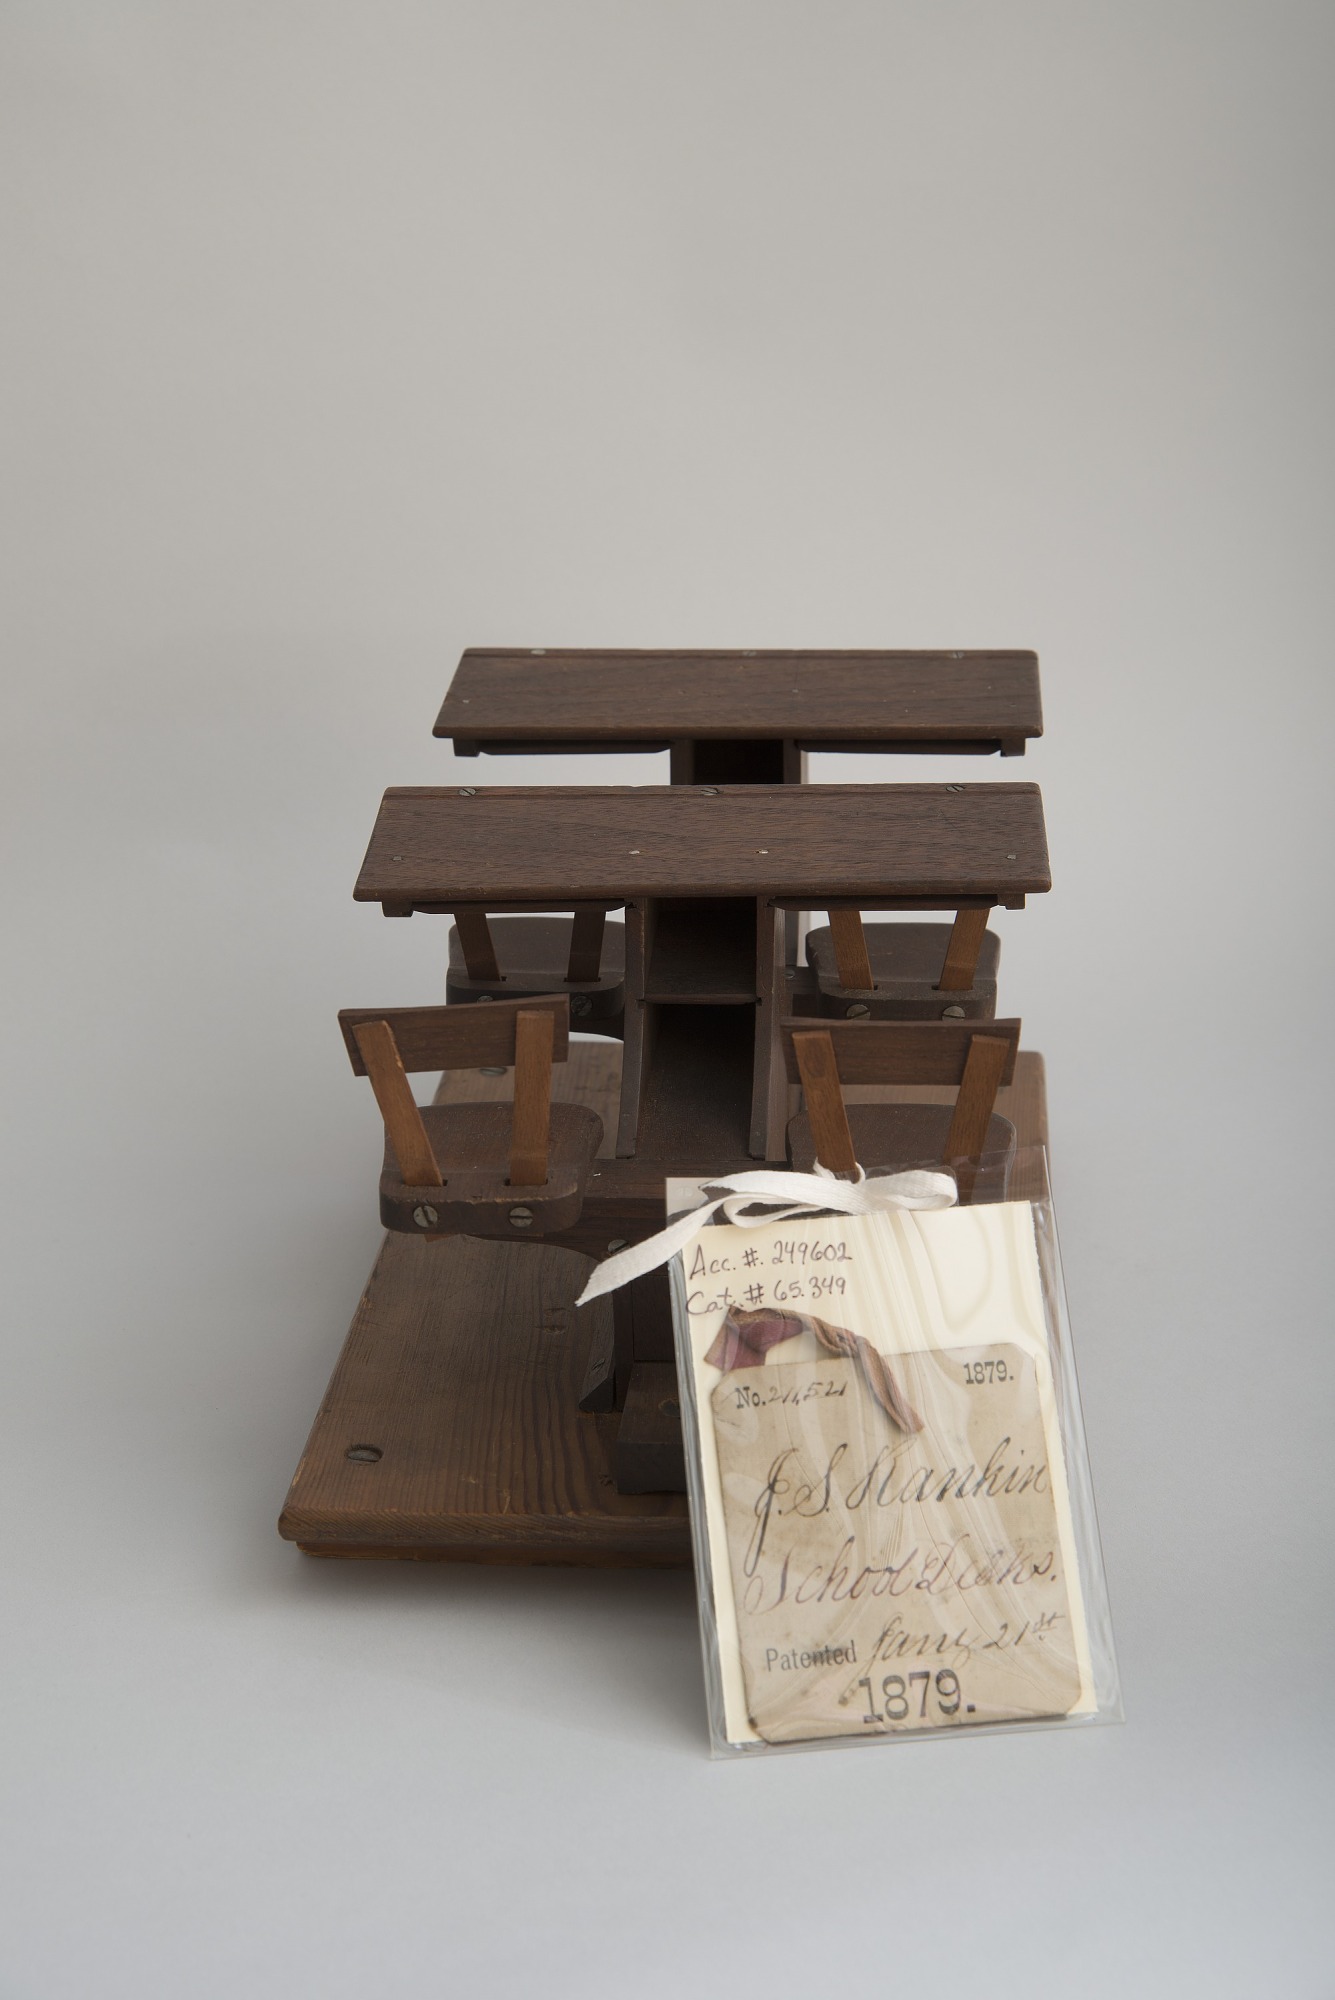 Acc. #. 249602
Cat. # 65.349
No. 211,521
1879.
J. S. Rankin
School Desks.
Patented Jany 21st
1879.